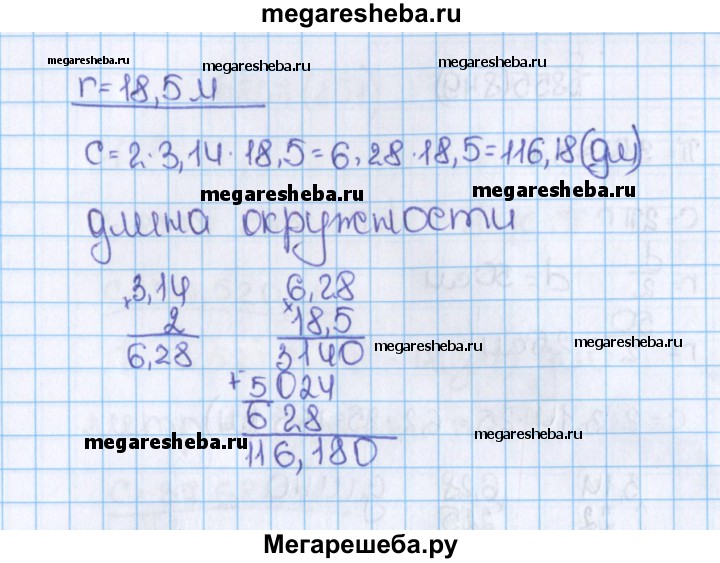 megaresheba.ru
megaresheba.ru
megaresheba.ru megaresheba.ru
r = 18,5 м
C = 2 · 3,14 · 18,5 = 6,28 · 18,5 = 116,18 (дм)
megaresheba.ru megaresheba.ru
длина окружности
3,14 6,28
× 2 × 18,5
6,28 3140
megaresheba.ru megaresheba.ru
+ 5024
628
megaresheba.ru megaresheba.ru
116,180
Мегарешеба.ру